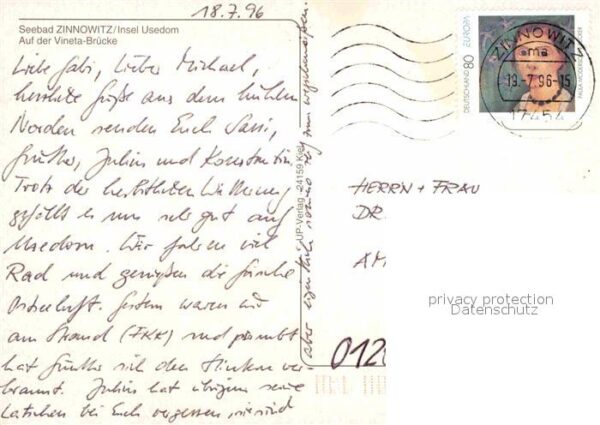 18.7.96
Seebad ZINNOWITZ/Insel Usedom
Auf der Vineta-Brücke
Liebe Gabi, Lieber Michael,
herzliche Grüße aus dem kühlen
Norden senden Euch
Günther, Julius und Konstantin.
Trotz der herbstlichen Witterung
gefällt es uns sehr gut auf
Usedom. Wir fahren viel
Rad und genießen die frische
Ostseeluft. Gestern waren wir
am Strand (FKK) und prompt
hat Günther sich den Hintern ver
brannt. Julius hat übrigens seine
Latschen bei Euch vergessen, sie sind
aber eigentlich sowieso zum wegschmeißen.
UP-Verlag 24159 Kiel
DEUTSCHLAND 80 EUROPA
PAULA MODERSOHN-BECKER
ZINNOWITZ
ma
19.-7.96-15
17454
HERRN + FRAU
DR.
AM
012
privacy protection
Datenschutz